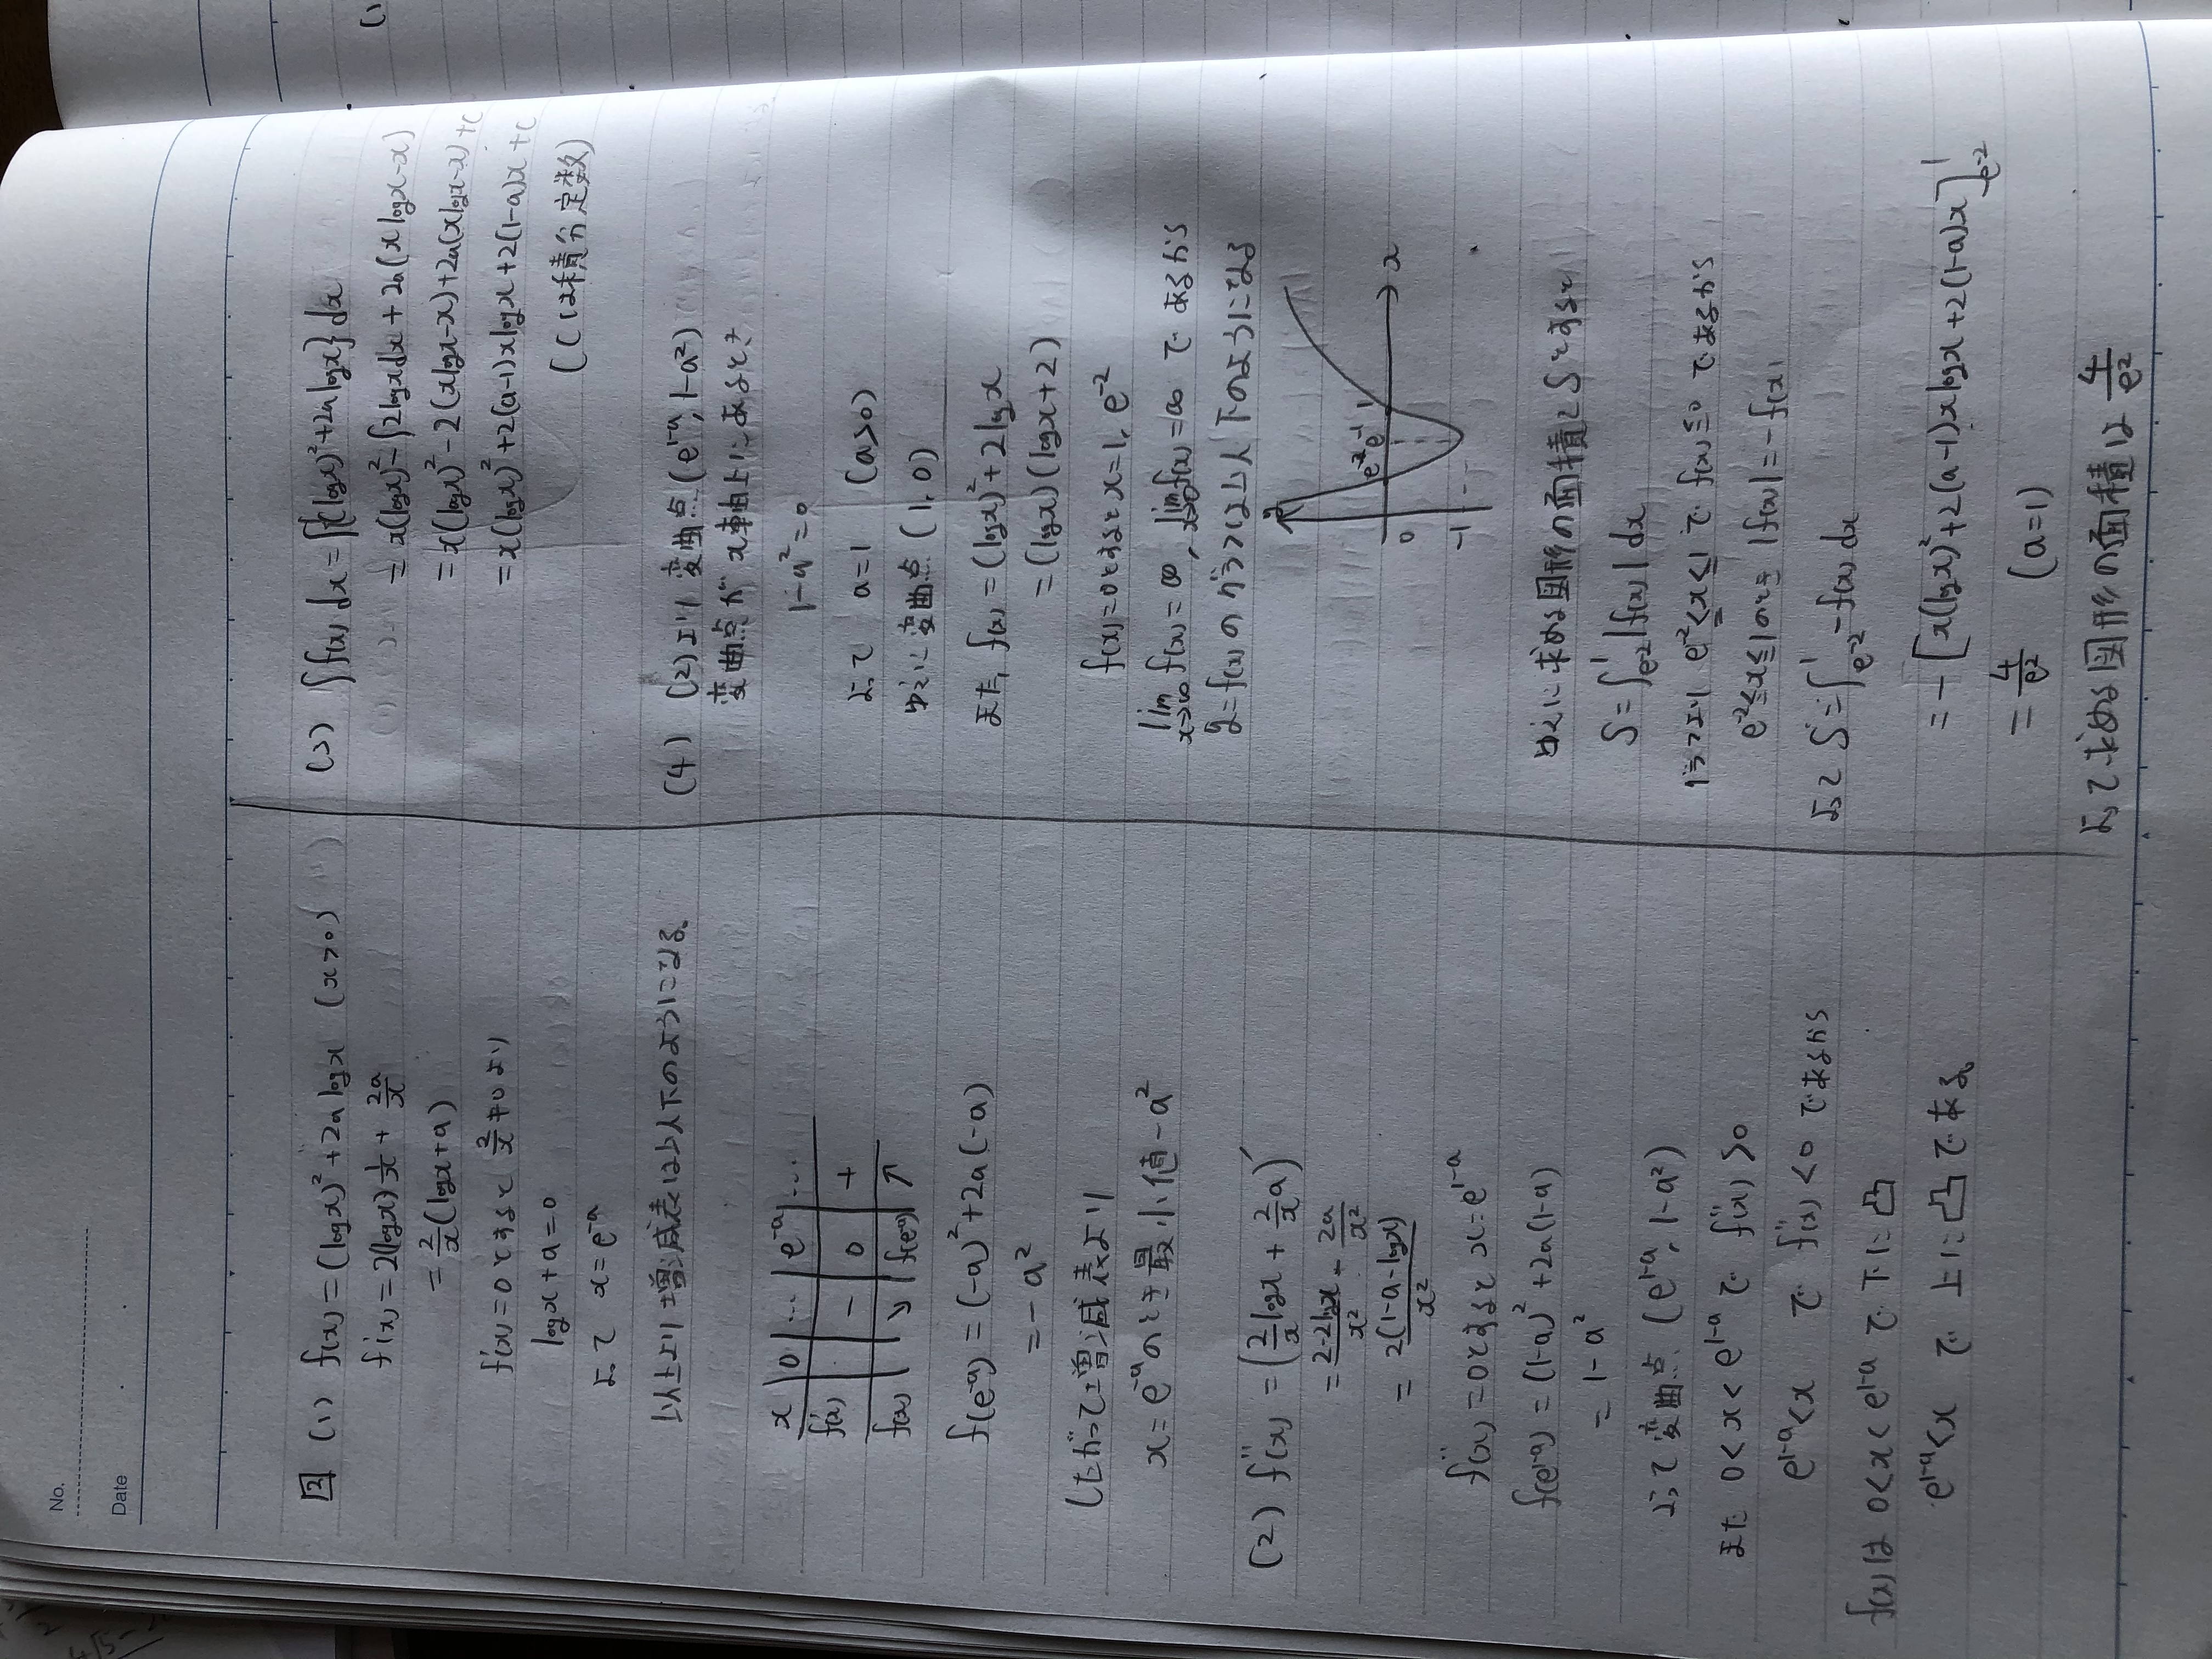 No.
Date
2 (1) f(x) = (log x)² + 2a log x (x > 0)
f'(x) = 2(log x) 1/x + 2a/x
= 2/x (log x + a)
f'(x) = 0 とすると 2/x ≠ 0 より
log x + a = 0
よって x = e^{-a}
以上より増減表は以下のようになる。
x | 0 | … | e^{-a} | …
f'(x) | | − | 0 | +
f(x) | | ↘ | f(e^{-a}) | ↗
f(e^{-a}) = (-a)² + 2a(-a)
= -a²
したがって増減表より
x = e^{-a} のとき最小値 -a²
(2) f''(x) = (2/x log x + 2/x a)'
= (2 - 2log x)/x² - 2a/x²
= 2(1-a-log x)/x²
f''(x) = 0 とすると x = e^{1-a}
f(e^{1-a}) = (1-a)² + 2a(1-a)
= 1 - a²
よって変曲点 (e^{1-a}, 1-a²)
また 0 < x < e^{1-a} で f''(x) > 0
e^{1-a} < x で f''(x) < 0 であるから
f(x) は 0 < x < e^{1-a} で下に凸
e^{1-a} < x で上に凸である。
(3) ∫f(x) dx = ∫{(log x)² + 2a log x} dx
= x(log x)² - ∫2log x dx + 2a(x log x - x)
= x(log x)² - 2(x log x - x) + 2a(x log x - x) + C
= x(log x)² + 2(a-1)x log x + 2(1-a)x + C
(Cは積分定数)
(4) (2)より変曲点 (e^{1-a}, 1-a²)
変曲点が x軸上にあるとき
1 - a² = 0
よって a = 1 (a > 0)
ゆえに変曲点 (1, 0)
また, f(x) = (log x)² + 2 log x
= (log x)(log x + 2)
f(x) = 0 とすると x = 1, e^{-2}
lim x→∞ f(x) = ∞, lim x→0 f(x) = ∞ であるから
y = f(x) のグラフは以下のようになる
e^{-2} e^{-1} 1
0
x
-1
ゆえに求める図形の面積を S とすると
S = ∫_{e^{-2}}^{1} |f(x)| dx
グラフより e^{-2} ≤ x ≤ 1 で f(x) ≦ 0 であるから
e^{-2} ≦ x ≦ 1 のとき |f(x)| = -f(x)
よって S = ∫_{e^{-2}}^{1} -f(x) dx
= -[x(log x)² + 2(a-1)x log x + 2(1-a)x]_{e^{-2}}^{1}
= 4/e² (a = 1)
よって求める図形の面積は 4/e²